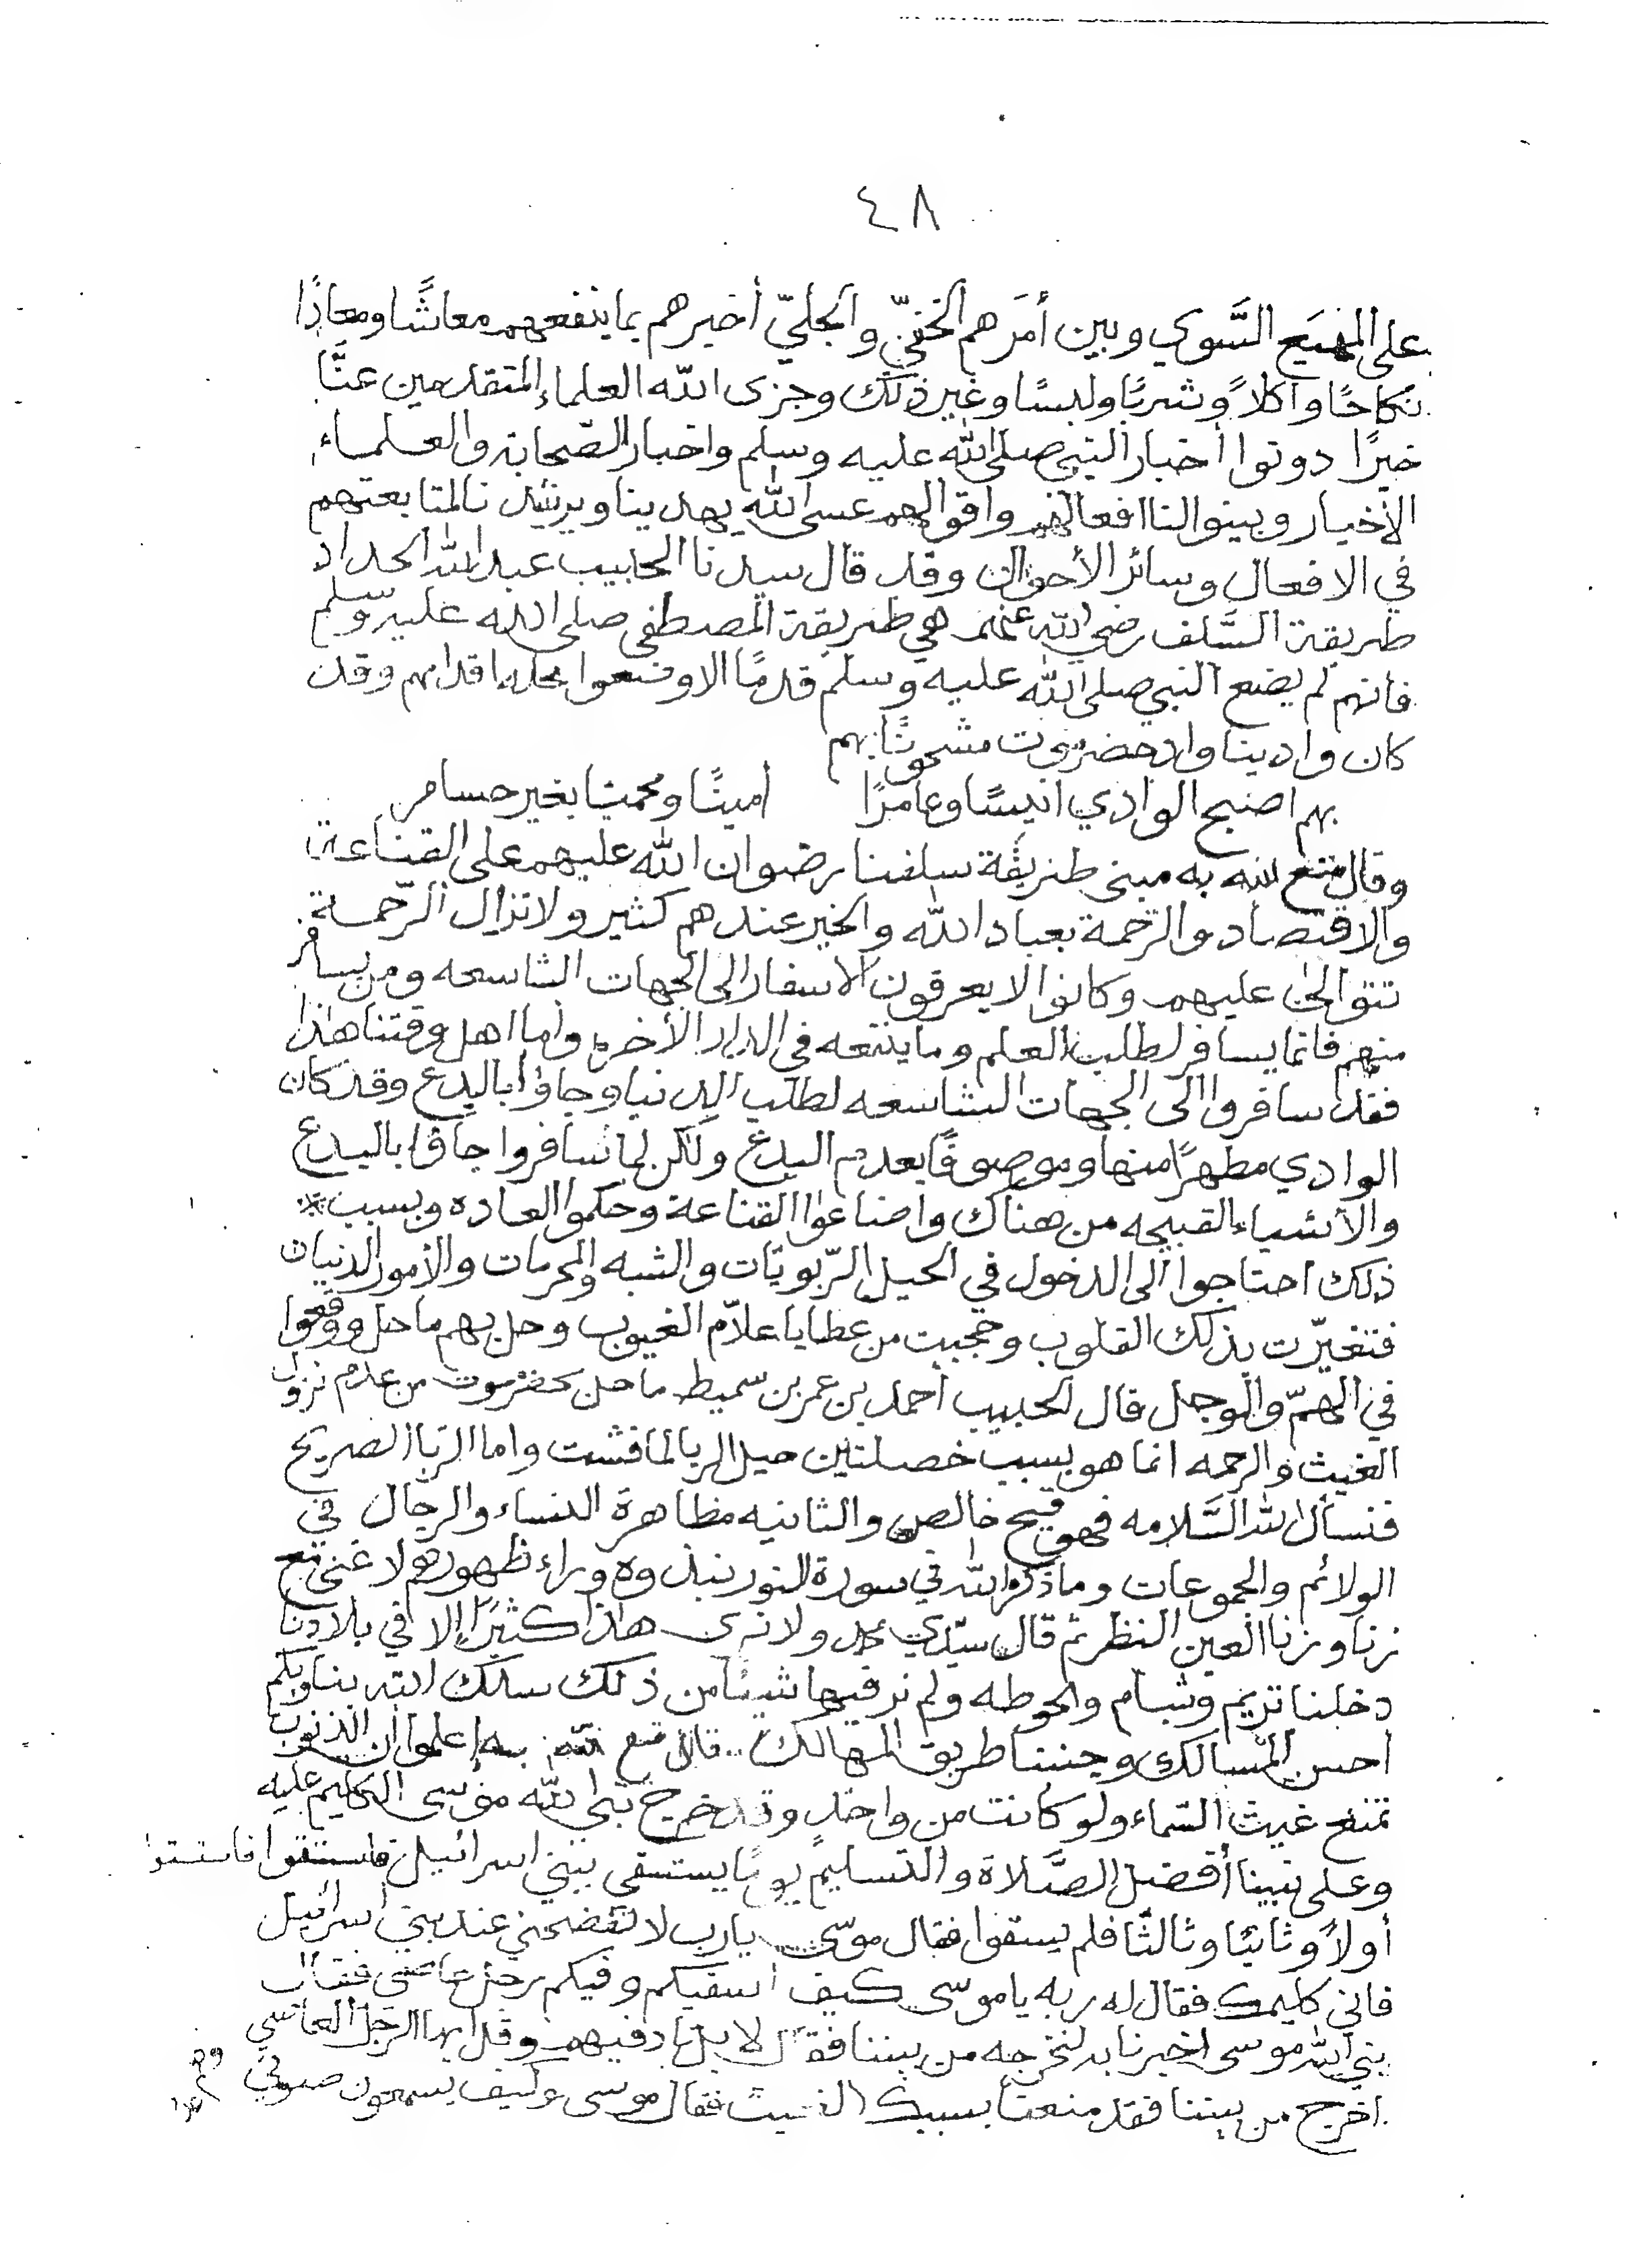 ٤٨
على المهيع السَّوي وبين أمرَهم الخفيّ والجليّ أخبرهم بما ينفعهم معاشًا ومعادًا
نكاحًا واكلاً وشربًا ولبسًا وغير ذلك وجزى الله العلماء المتقدمين عنَّا
خيرًا دونوا أخبار النبي صلى الله عليه وسلم واخبار الصّحابة والعلماء
الأخيار وبينوا لنا افعالهم واقوالهم عسى الله يهدينا ويرشدنا لمتابعتهم
في الافعال وسائر الأحوال وقد قال سيدنا الحبيب عبد الله الحداد
طريقة السَّلف رضي الله عنهم هي طريقة المصطفى صلى الله عليه وسلم
فانهم لم يضع النبي صلى الله عليه وسلم قدمًا الا وضعوا عليه اقدامهم وقد
كان وادينا وادحضرموت مشحونًا بهم
بهم اصبح الوادي انيسًا وعامرًا أمينًا ومحميًا بغير حسام
وقال متع الله به مبنى طريقة سلفنا رضوان الله عليهم على القناعة
والاقتصاد والرّحمة بعباد الله والخير عندهم كثير ولا تزال الرّحمة
تتوالى عليهم وكانوا لا يعرفون الاسفار الى الجهات الشاسعه ومن يسافر
منهم فانما يسافر لطلب العلم وما ينفعه في الدار الأخره وأما اهل وقتنا هذا
فقد سافروا الى الجهات الشاسعه لطلب الدنيا وجاؤا بالبدع وقد كان
الوادي مطهرًا منها وموصوفًا بعدم البدع ولكن لما سافروا جاؤا بالبدع
والأشياء القبيحه من هناك واضاعوا القناعة وحكموا العاده وبسبب
ذلك احتاجوا الى الدخول في الحيل الرّبويّات والشبه والمحرمات والأمور الدنيات
فتغيّرت بذلك القلوب وحجبت من عطايا علاّم الغيوب وحل بهم ما حل ووقعوا
في الهمّ والوجل قال الحبيب احمد بن عمر بن سميط ما حل بحضرموت من عدم نزول
الغيث والرحمه انما هو بسبب خصلتين حيل الربا لما فشت واما الربا الصريح
فنسأل الله السَّلامه فهو قبيح خالص والثانيه مظاهرة النساء والرجال في
الولائم والمجموعات وما ذكره الله في سورة النور نبذوه وراء ظهورهم لا غنى مع
زنا وزنا العين النظر ثم قال سيّدي محمد ولا نرى هذا كثيرًا إلا في بلادنا
دخلنا تريم وشبام والحوطه ولم نر فيها شيئًا من ذلك سلك الله بنا وبكم
احسن المسالك وجنبنا طريق المهالك .. قال متع الله به إعلموا أن الذنوب
تمنع غيث السّماء ولو كانت من واحد وقد خرج نبي الله موسى الكليم عليه
وعلى نبينا أفضل الصَّلاة والتسليم يومًا يستسقي ببني اسرائيل فاستسقوا
أولاً وثانيًا وثالثًا فلم يسقوا فقال موسى يا رب لا تفضحني عند بني اسرائيل
فاني كليمك فقال له ربه يا موسى كيف اسقيكم وفيكم رجل عاصي فقال
نبي الله موسى اخبرنا به لنخرجه من بيننا فقال لا بل ناد فيهم وقل ايها الرّجل العاصي
اخرج من بيننا فقد منعنا بسببك الغيث فقال موسى وكيف يسمعون صوتي